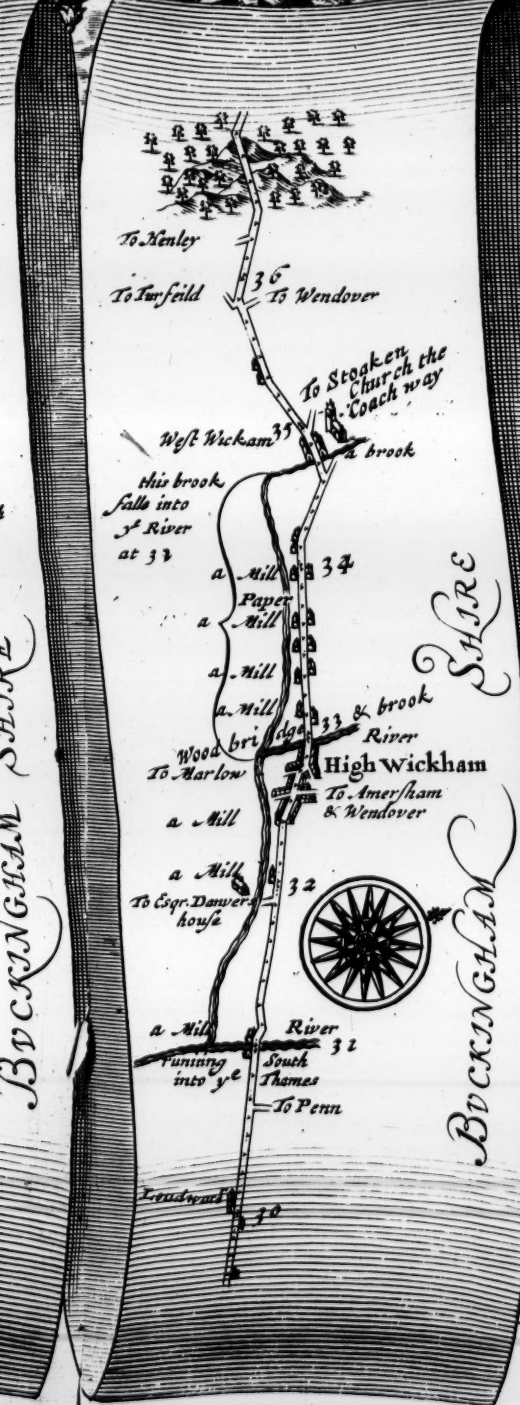 To Henley
36
To Turfeild
To Wendover
To Stoaken
Church the
Coach way
West Wickam
35
a brook
this brook
falls into
yᵉ River
at 32
a Mill
34
Paper
a Mill
a Mill
a Mill
Wood bridge
33
& brook
River
To Marlow
High Wickham
To Amersham
& Wendover
a Mill
a Mill
32
To Esqr. Danvers
house
a Mill
River
31
running South
into yᵉ Thames
To Penn
Loudwatr
30
BVCKINGHAM SHIRE
BVCKINGHAM SHIRE